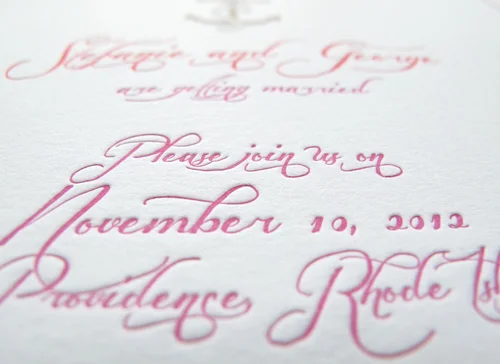 Stefanie and George
are getting married
Please join us on
November 10, 2012
Providence Rhode Isl